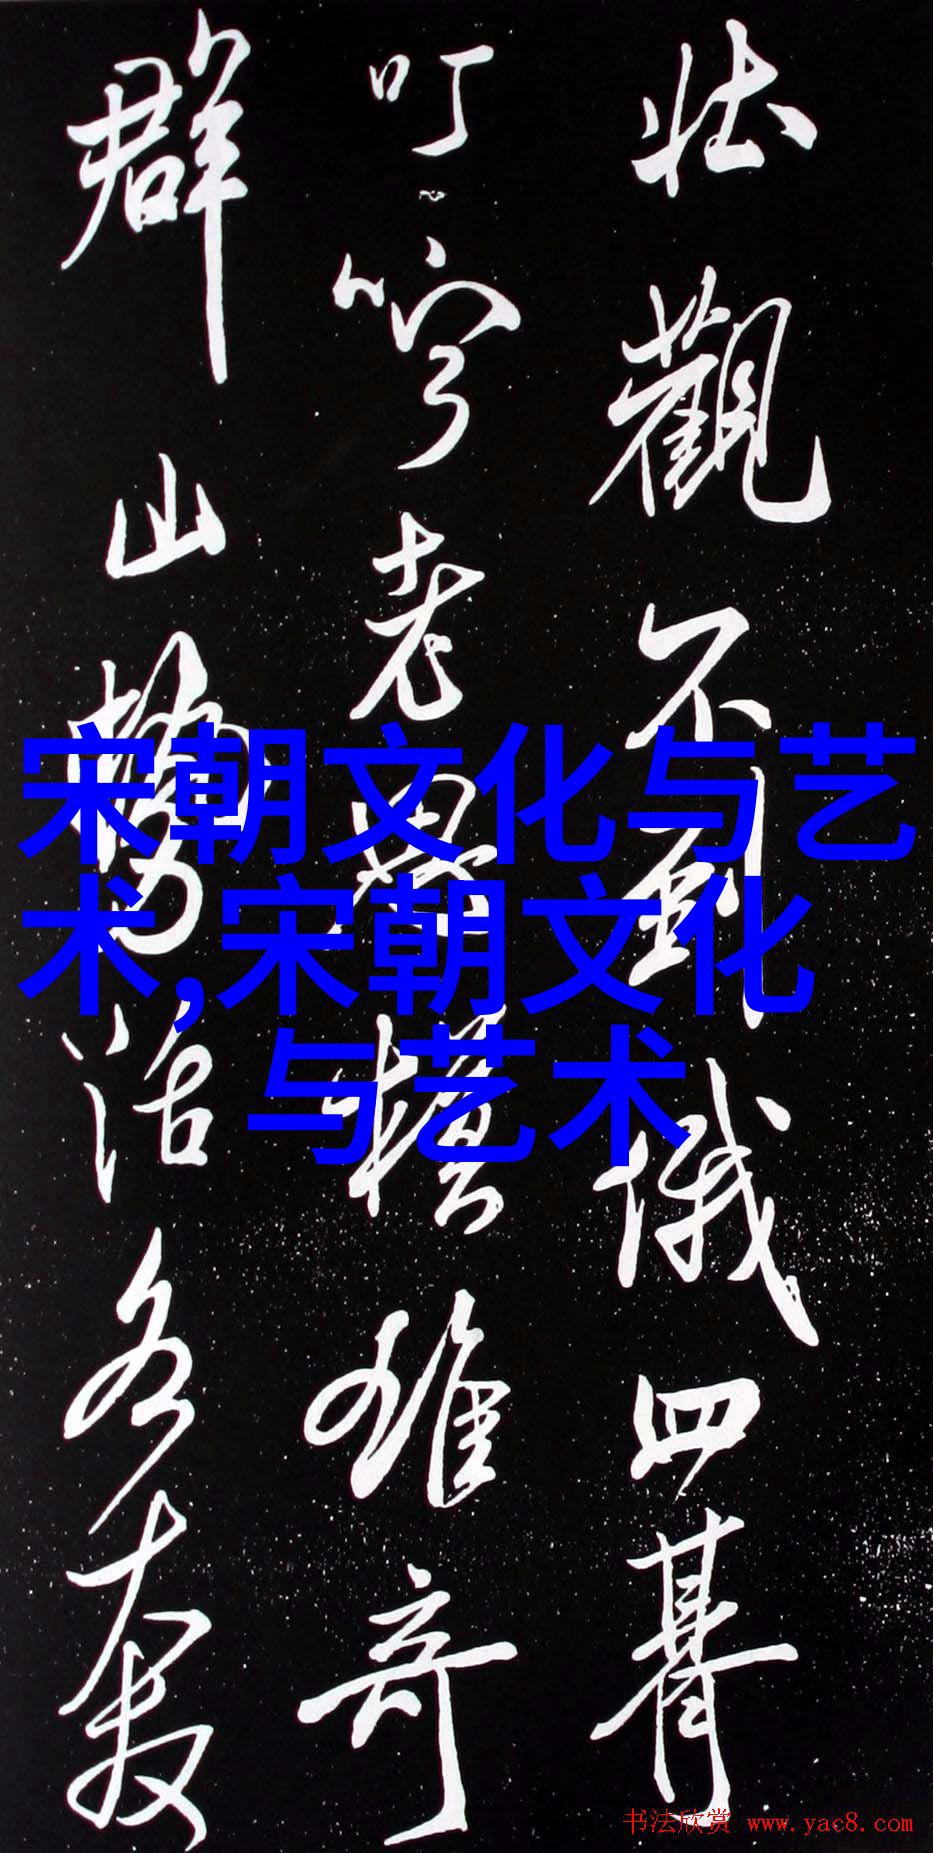 壮觀不到俄四
叮嚀老模雄奇
群山勢活各
宋朝文化与艺
术,宋朝文化
与艺术
书法欣赏 www.yac8.com